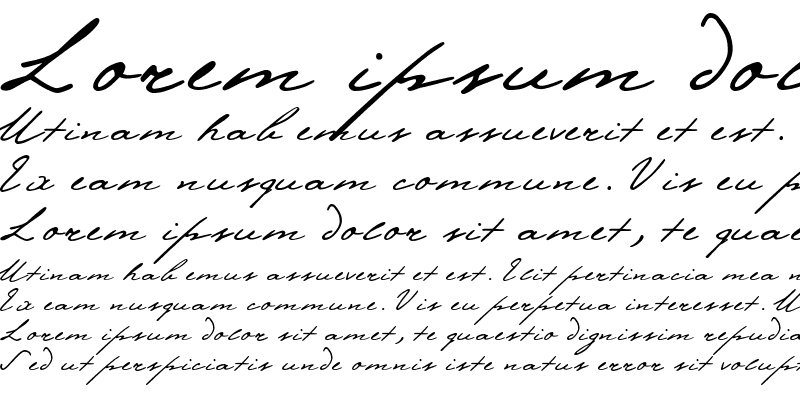 Lorem ipsum dol
Utinam hab emus assueverit et est.
Ex eam nusquam commune. Vis eu p
Lorem ipsum dolor sit amet, te quae
Utinam hab emus assueverit et est. Elit pertinacia mea n
Ex eam nusquam commune. Vis eu perpetua interesset. U
Lorem ipsum dolor sit amet, te quaestio dignissim repudia
Sed ut perspiciatis unde omnis iste natus error sit volupt